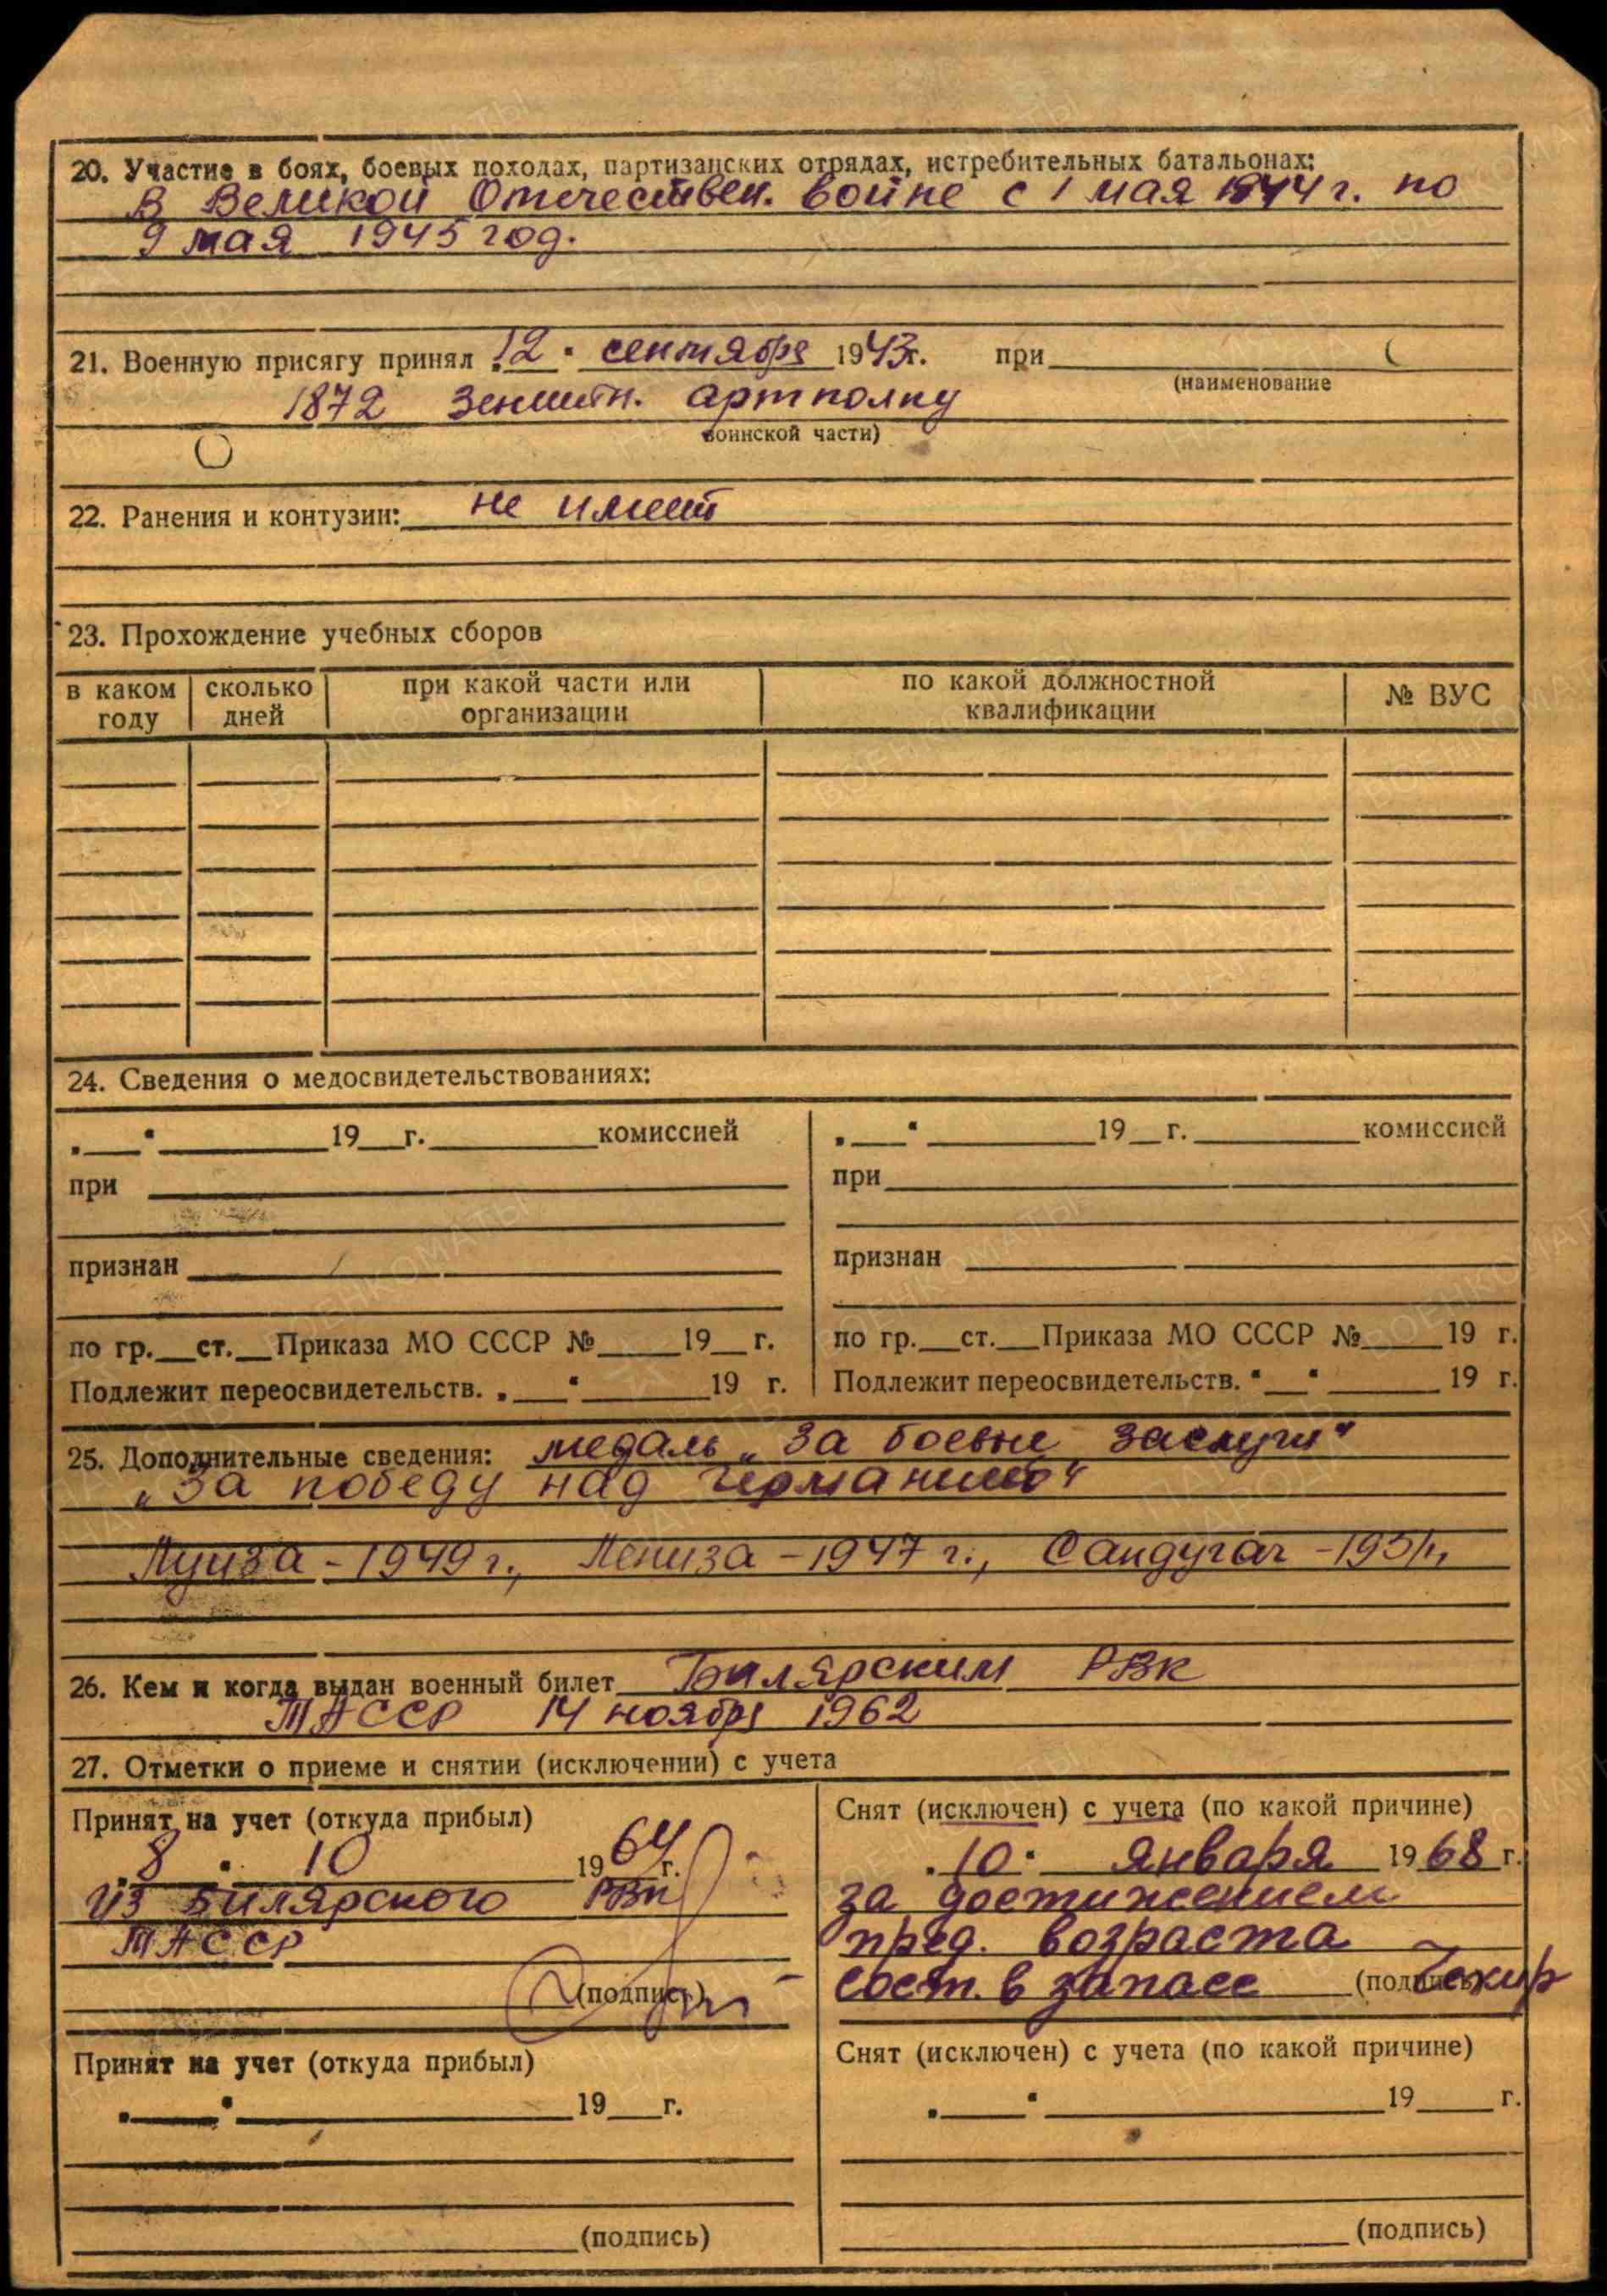 20. Участие в боях, боевых походах, партизанских отрядах, истребительных батальонах:
В Великой Отечествен. войне с 1 мая 1944 г. по
9 мая 1945 год.
21. Военную присягу принял "12" сентября 1943 г. при
(наименование
1872 Зенитн. артполку
воинской части)
22. Ранения и контузии: не имеет
23. Прохождение учебных сборов
в каком году сколько дней при какой части или организации по какой должностной квалификации № ВУС
24. Сведения о медосвидетельствованиях:
„___“ 19__г. комиссией
при
признан
по гр.__ст.__Приказа МО СССР №____19__г.
Подлежит переосвидетельств. „___“ ____19 г.
„___“ 19__г. комиссией
при
признан
по гр.__ст.__Приказа МО СССР №____19 г.
Подлежит переосвидетельств. "__" ____19 г.
25. Дополнительные сведения: медаль „За боевые заслуги“
„За победу над Германией“
Луиза - 1949 г., Лениза - 1947 г., Сандугач -
26. Кем и когда выдан военный билет Билярским РВК
ТАССР 14 ноября 1962
27. Отметки о приеме и снятии (исключении) с учета
Принят на учет (откуда прибыл)
„8“ 10 1964 г.
из Билярского РВК
ТАССР
(подпись)
Снят (исключен) с учета (по какой причине)
„10“ января 1968 г.
за достижением
пред. возраста
сост. в запасе (подпись)
Принят на учет (откуда прибыл)
„___“ 19__г.
(подпись)
Снят (исключен) с учета (по какой причине)
„___“ 19__г.
(подпись)
ВОЕНКОМАТЫ
ПАМЯТЬ НАРОДА